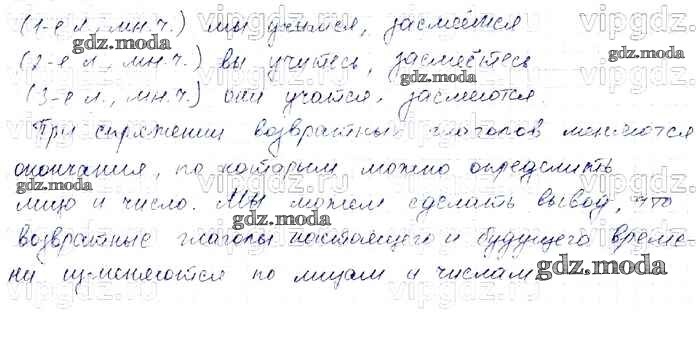 (1-е л., мн.ч.) мы учимся, засмеёмся
(2-е л., мн.ч.) вы учитесь, засмеётесь
(3-е л., мн.ч.) они учатся, засмеются.
При спряжении возвратных глаголов меняются
окончания, по которым можно определить
лицо и число. Мы можем сделать вывод, что
возвратные глаголы настоящего и будущего време-
ни изменяются по лицам и числам
gdz.moda
gdz.moda
gdz.moda
gdz.moda
gdz.moda
gdz.moda
gdz.moda
gdz.moda
vipgdz.ru